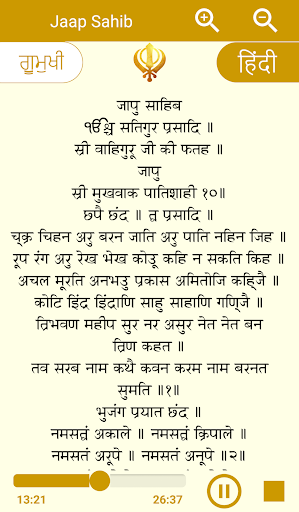 Jaap Sahib
ਗੁਰਮੁਖੀ
हिंदी
जापु साहिब
ੴ सतिगुर प्रसादि ॥
स्री वाहिगुरू जी की फतह ॥
जापु
स्री मुखवाक पातिशाही १०॥
छपै छंद ॥ त्व प्रसादि ॥
च्क्र चिहन अरु बरन जाति अरु पाति नहिन जिह ॥
रूप रंग अरु रेख भेख कोउू कहि न सकति किह ॥
अचल मूरति अनभउ प्रकास अमितोजि कहि्जै ॥
कोटि इंद्र इंद्राणि साहु साहाणि गणि्जै ॥
त्रिभवण महीप सुर नर असुर नेत नेत बन
त्रिण कहत ॥
तव सरब नाम कथै कवन करम नाम बरनत
सुमति ॥१॥
भुजंग प्रयात छंद ॥
नमसत्वं अकाले ॥ नमसत्वं क्रिपाले ॥
नमसतं अरूपे ॥ नमसतं अनूपे ॥२॥
13:21
26:37